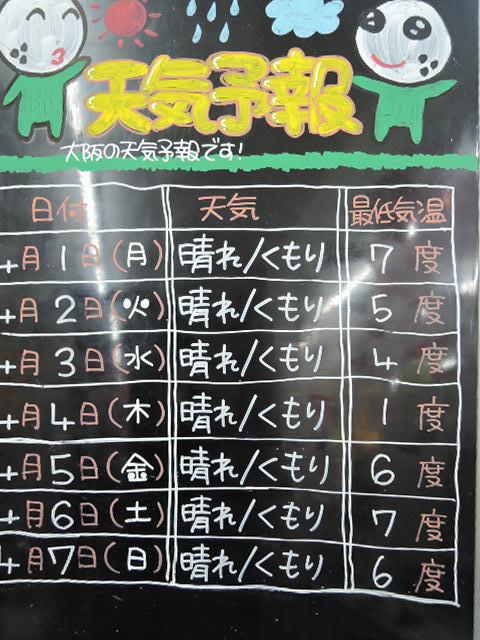 天気予報
大阪の天気予報です!
日付 天気 最低気温
4月1日(月) 晴れ/くもり 7度
4月2日(火) 晴れ/くもり 5度
4月3日(水) 晴れ/くもり 4度
4月4日(木) 晴れ/くもり 1度
4月5日(金) 晴れ/くもり 6度
4月6日(土) 晴れ/くもり 7度
4月7日(日) 晴れ/くもり 6度